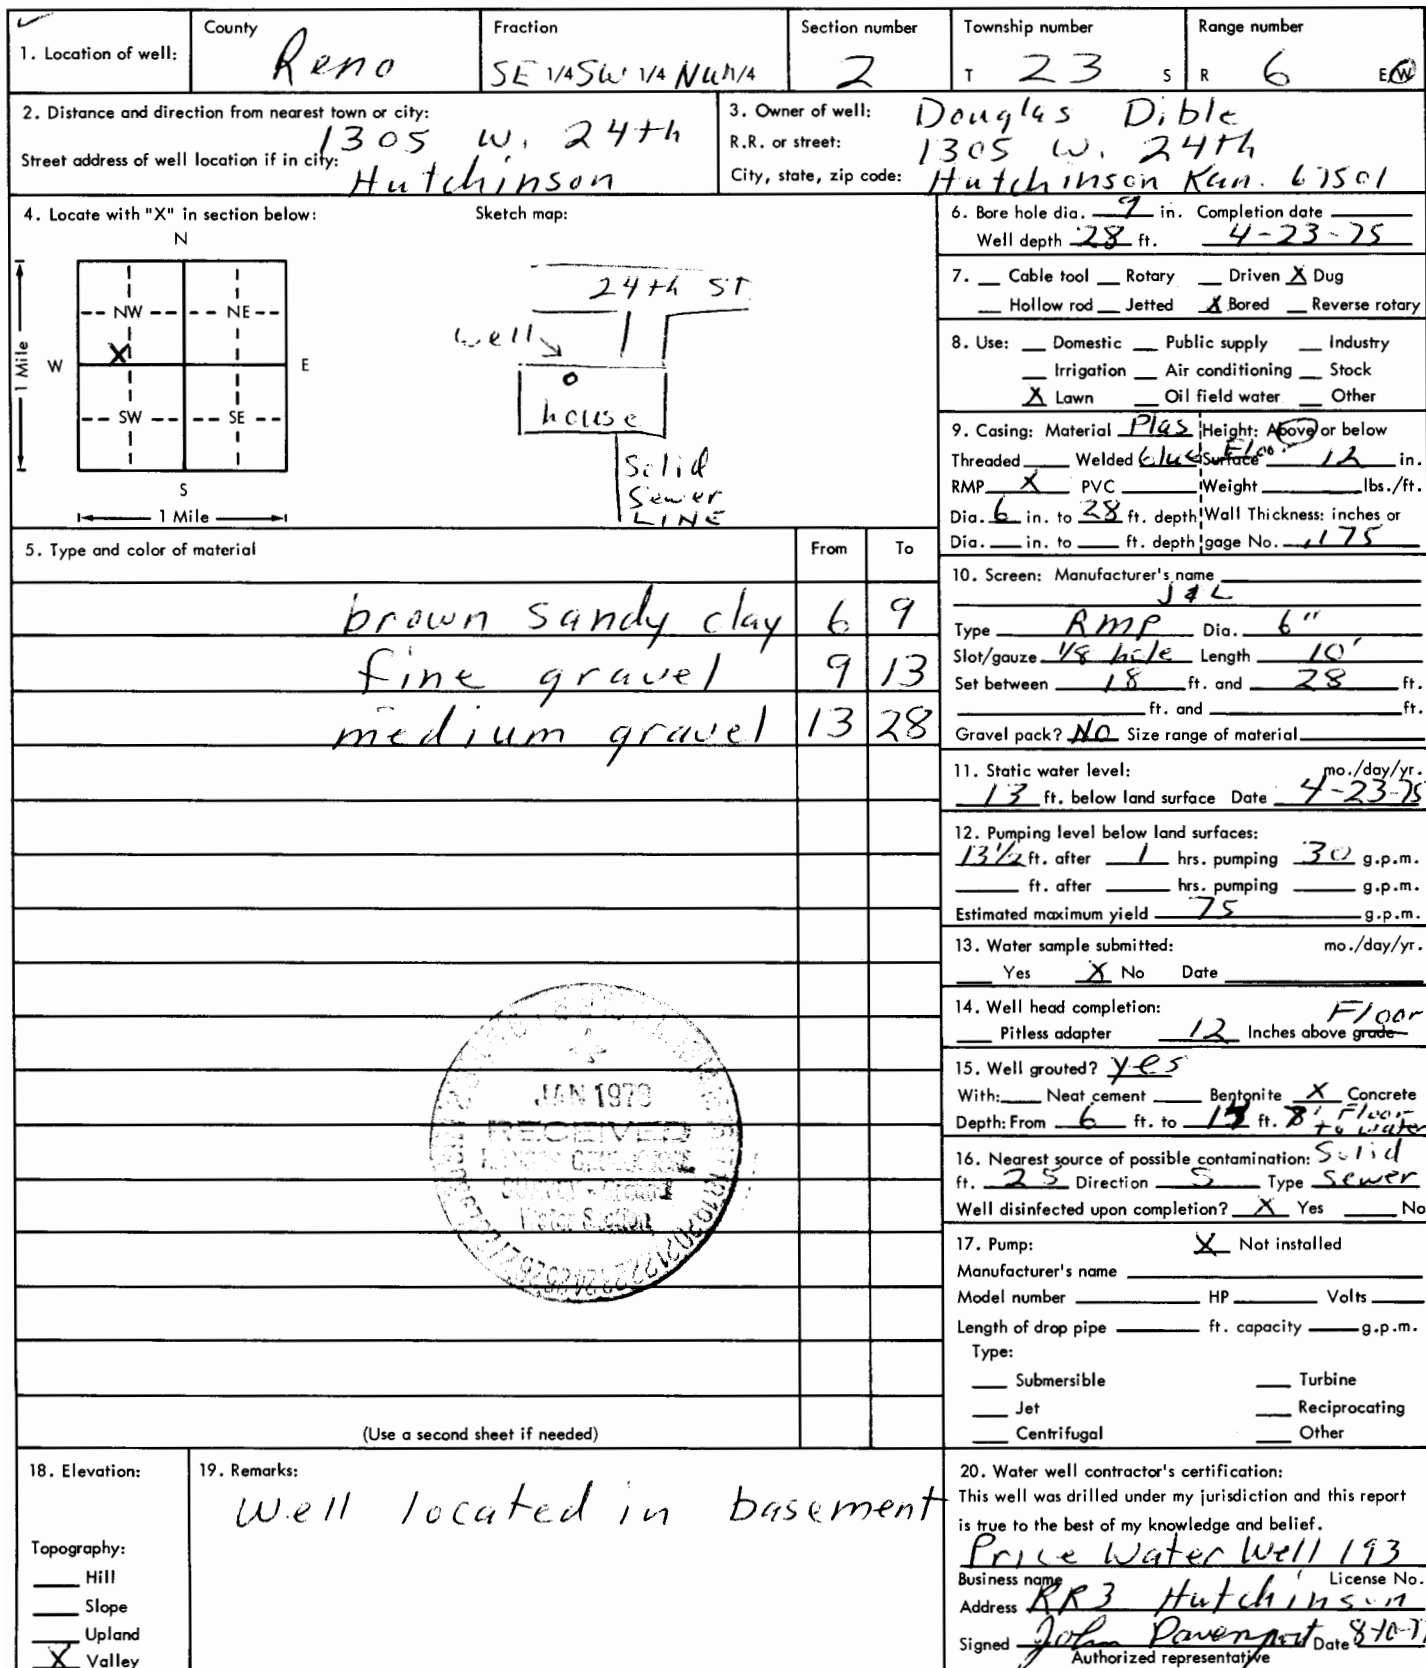 1. Location of well: County Reno Fraction SE 1/4 SW 1/4 NW 1/4 Section number 2 Township number T 23 S Range number R 6 E/W
2. Distance and direction from nearest town or city: 1305 W. 24th
Street address of well location if in city: Hutchinson
3. Owner of well: Douglas Dible
R.R. or street: 1305 W. 24th
City, state, zip code: Hutchinson Kan. 67501
4. Locate with "X" in section below:
N
NW NE
X
W E
1 Mile
SW SE
S
1 Mile
Sketch map:
24th ST
well
house
Solid
Sewer
LINE
5. Type and color of material From To
brown sandy clay 6 9
fine gravel 9 13
medium gravel 13 28
JAN 1979
RECEIVED
Water Section
(Use a second sheet if needed)
6. Bore hole dia. 9 in. Completion date
Well depth 28 ft. 4-23-75
7. Cable tool Rotary Driven X Dug
Hollow rod Jetted X Bored Reverse rotary
8. Use: Domestic Public supply Industry
Irrigation Air conditioning Stock
X Lawn Oil field water Other
9. Casing: Material Plas Height: Above or below
Threaded Welded Glue Surface Floor 12 in.
RMP X PVC Weight lbs./ft.
Dia. 6 in. to 28 ft. depth Wall Thickness: inches or
Dia. in. to ft. depth gage No. .175
10. Screen: Manufacturer's name
J & L
Type RMP Dia. 6"
Slot/gauze 1/8 hole Length 10'
Set between 18 ft. and 28 ft.
ft. and ft.
Gravel pack? NO Size range of material
11. Static water level: mo./day/yr.
13 ft. below land surface Date 4-23-75
12. Pumping level below land surfaces:
13 1/2 ft. after 1 hrs. pumping 30 g.p.m.
ft. after hrs. pumping g.p.m.
Estimated maximum yield 75 g.p.m.
13. Water sample submitted: mo./day/yr.
Yes X No Date
14. Well head completion: Floor
Pitless adapter 12 Inches above grade
15. Well grouted? yes
With: Neat cement Bentonite X Concrete
Depth: From 6 ft. to ft. 8' Floor to water
16. Nearest source of possible contamination: Solid
ft. 25 Direction S Type Sewer
Well disinfected upon completion? X Yes No
17. Pump: X Not installed
Manufacturer's name
Model number HP Volts
Length of drop pipe ft. capacity g.p.m.
Type:
Submersible Turbine
Jet Reciprocating
Centrifugal Other
18. Elevation:
Topography:
Hill
Slope
Upland
X Valley
19. Remarks:
Well located in basement
20. Water well contractor's certification:
This well was drilled under my jurisdiction and this report
is true to the best of my knowledge and belief.
Price Water Well 193
Business name License No.
Address RR3 Hutchinson
Signed John Davenport Date 8-10-7
Authorized representative